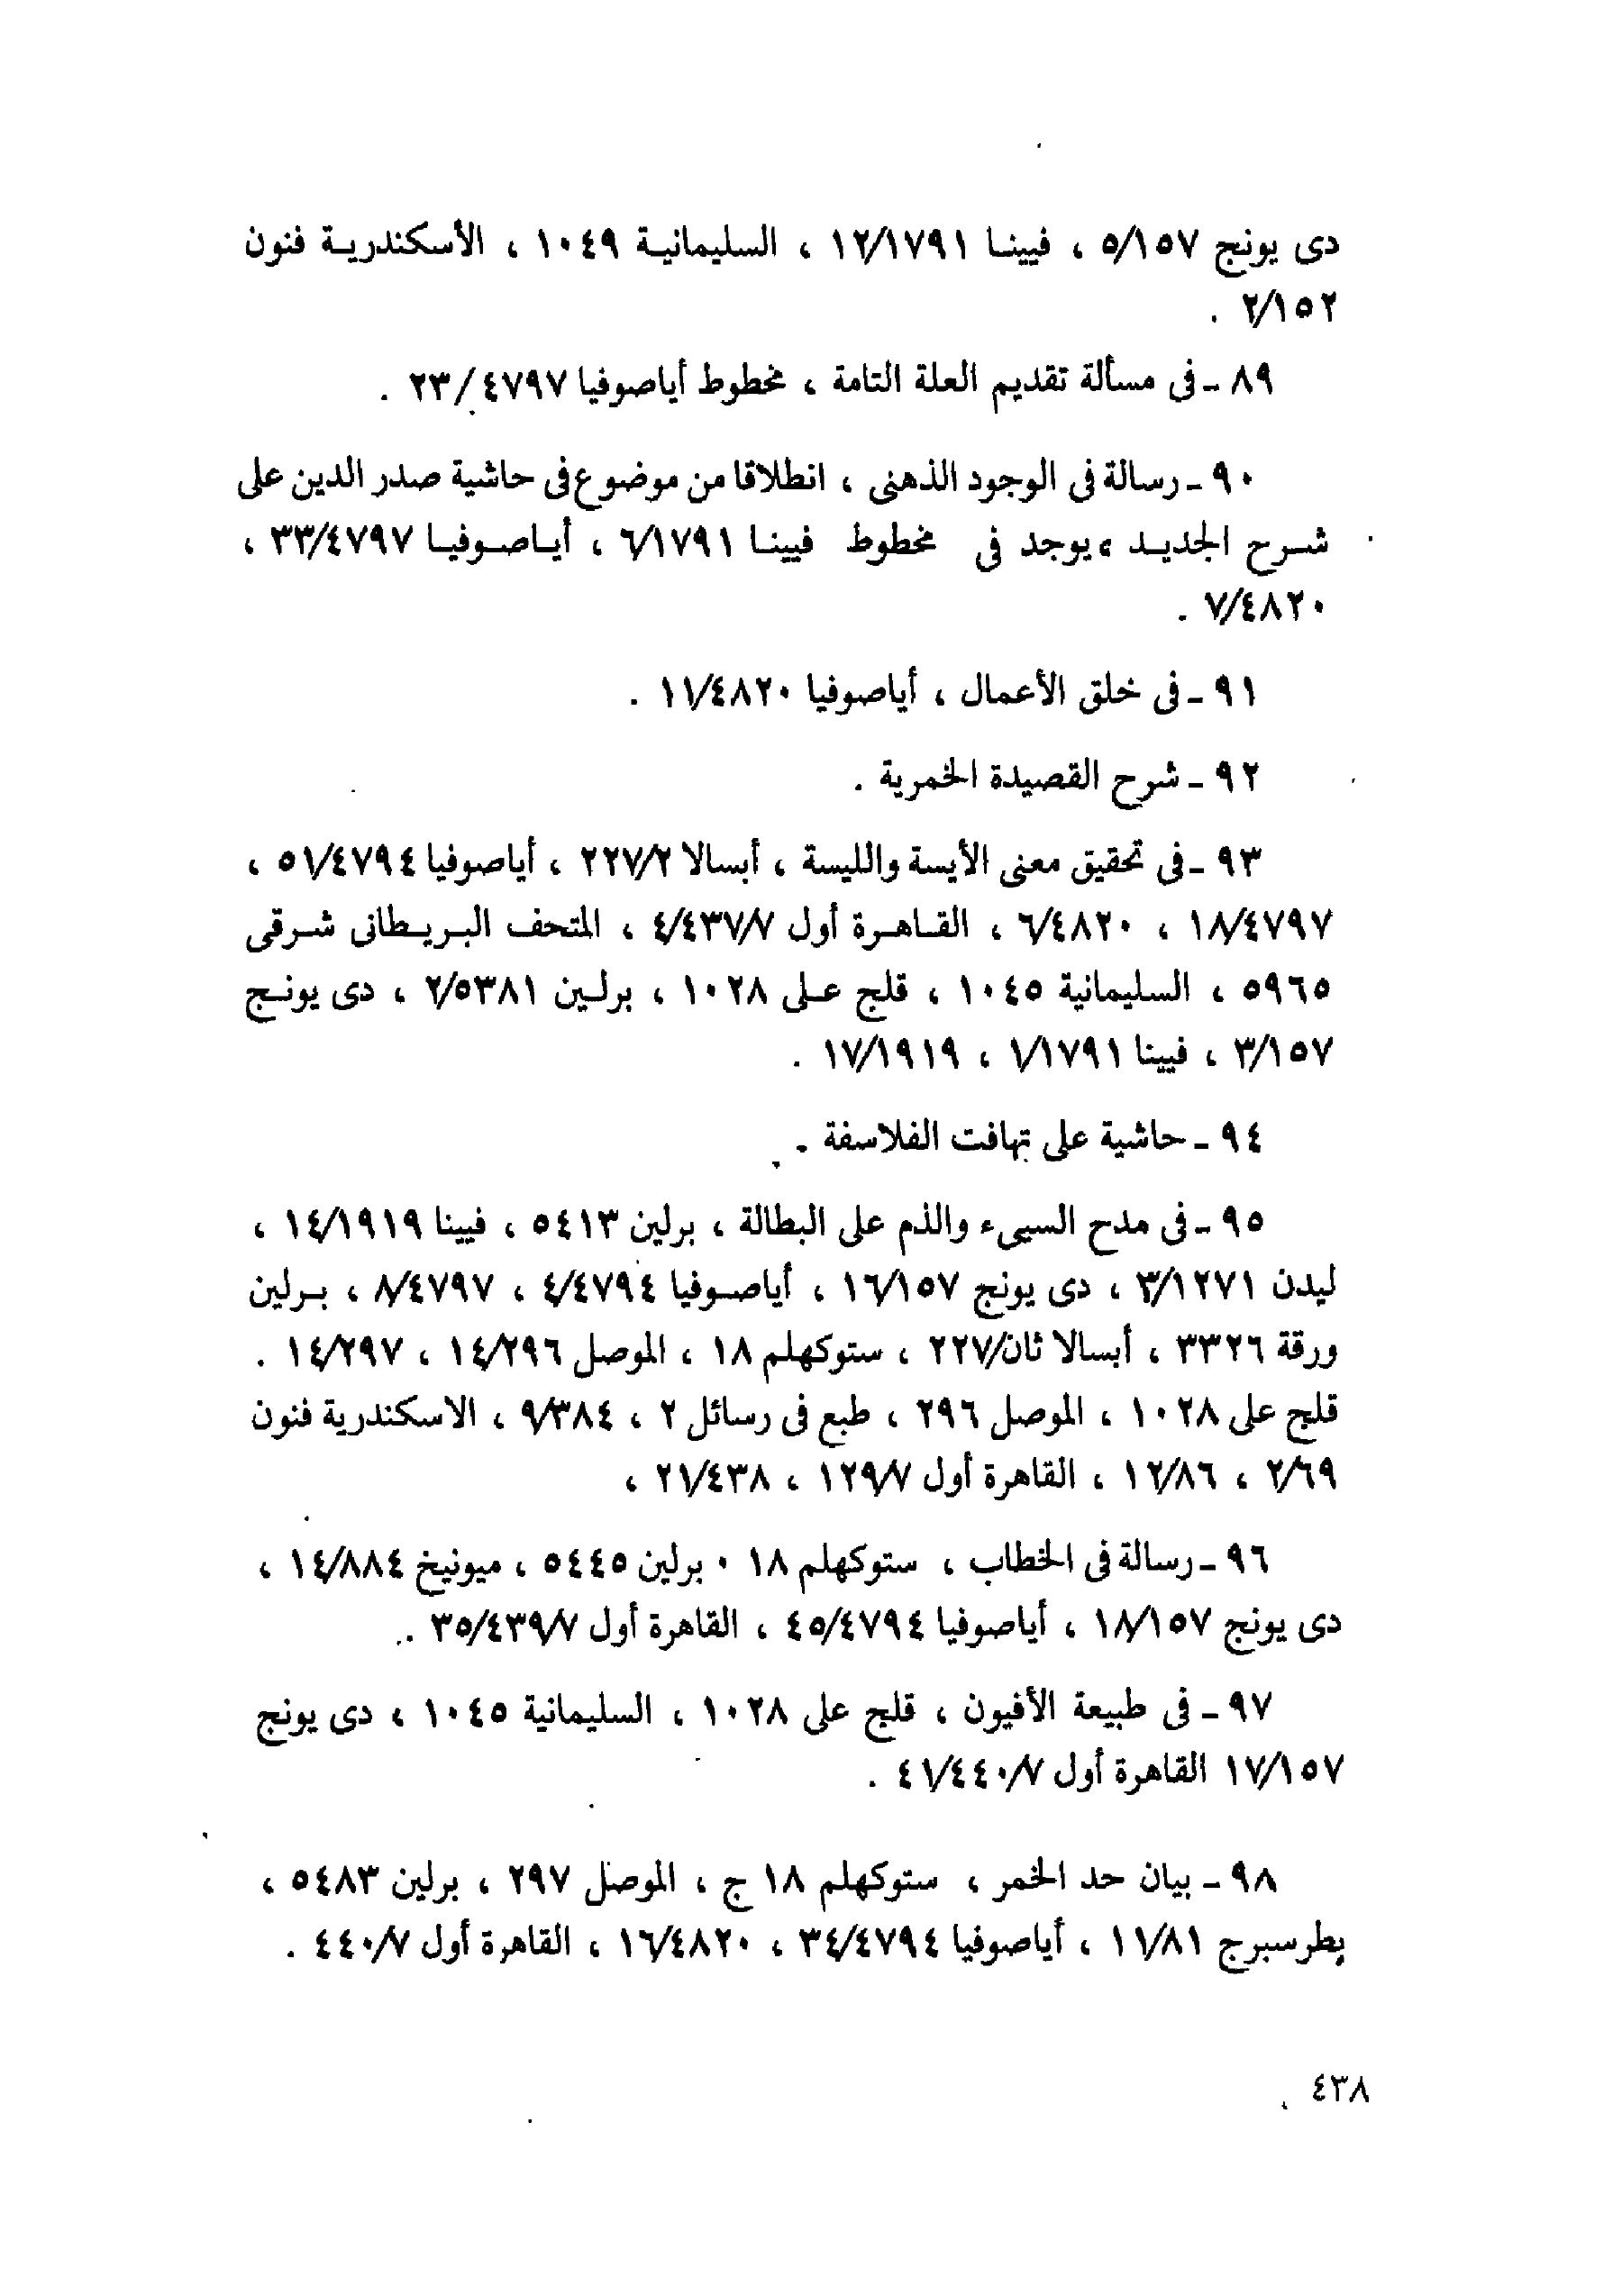 دى يونج ٥/١٥٧ ، فيينا ١٢/١٧٩١ ، السليمانية ١٠٤٩ ، الأسكندرية فنون
٢/١٥٢ .
٨٩ - فى مسألة تقديم العلة التامة ، مخطوط أياصوفيا ٢٣/٤٧٩٧ .
٩٠ - رسالة فى الوجود الذهنى ، انطلاقا من موضوع فى حاشية صدر الدين على
شرح الجديد ، يوجد فى مخطوط فيينا ٦/١٧٩١ ، أياصوفيا ٣٣/٤٧٩٧ ،
٧/٤٨٢٠ .
٩١ - فى خلق الأعمال ، أياصوفيا ١١/٤٨٢٠ .
٩٢ - شرح القصيدة الخمرية .
٩٣ - فى تحقيق معنى الأيسة والليسة ، أبسالا ٢٢٧/٢ ، أياصوفيا ٥١/٤٧٩٤ ،
١٨/٤٧٩٧ ، ٦/٤٨٢٠ ، القاهرة أول ٤/٤٣٧/٧ ، المتحف البريطانى شرقى
٥٩٦٥ ، السليمانية ١٠٤٥ ، قلج على ١٠٢٨ ، برلين ٢/٥٣٨١ ، دى يونج
٣/١٥٧ ، فيينا ١/١٧٩١ ، ١٧/١٩١٩ .
٩٤ - حاشية على تهافت الفلاسفة .
٩٥ - فى مدح السيىء والذم على البطالة ، برلين ٥٤١٣ ، فيينا ١٤/١٩١٩ ،
ليدن ٣/١٢٧١ ، دى يونج ١٦/١٥٧ ، أياصوفيا ٤/٤٧٩٤ ، ٨/٤٧٩٧ ، برلين
ورقة ٣٣٢٦ ، أبسالا ثان/٢٢٧ ، ستوكهلم ١٨ ، الموصل ١٤/٢٩٦ ، ١٤/٢٩٧ .
قلج على ١٠٢٨ ، الموصل ٢٩٦ ، طبع فى رسائل ٢ ، ٩/٣٨٤ ، الاسكندرية فنون
٢/٦٩ ، ١٢/٨٦ ، القاهرة أول ١٢٩/٧ ، ٢١/٤٣٨ ،
٩٦ - رسالة فى الخطاب ، ستوكهلم ١٨ ٠ برلين ٥٤٤٥ ، ميونيخ ١٤/٨٨٤ ،
دى يونج ١٨/١٥٧ ، أياصوفيا ٤٥/٤٧٩٤ ، القاهرة أول ٣٥/٤٣٩/٧ .
٩٧ - فى طبيعة الأفيون ، قلج على ١٠٢٨ ، السليمانية ١٠٤٥ ، دى يونج
١٧/١٥٧ القاهرة أول ٤١/٤٤٠/٧ .
٩٨ - بيان حد الخمر ، ستوكهلم ١٨ ج ، الموصل ٢٩٧ ، برلين ٥٤٨٣ ،
بطرسبرج ١١/٨١ ، أياصوفيا ٣٤/٤٧٩٤ ، ١٦/٤٨٢٠ ، القاهرة أول ٤٤٠/٧ .
٤٣٨